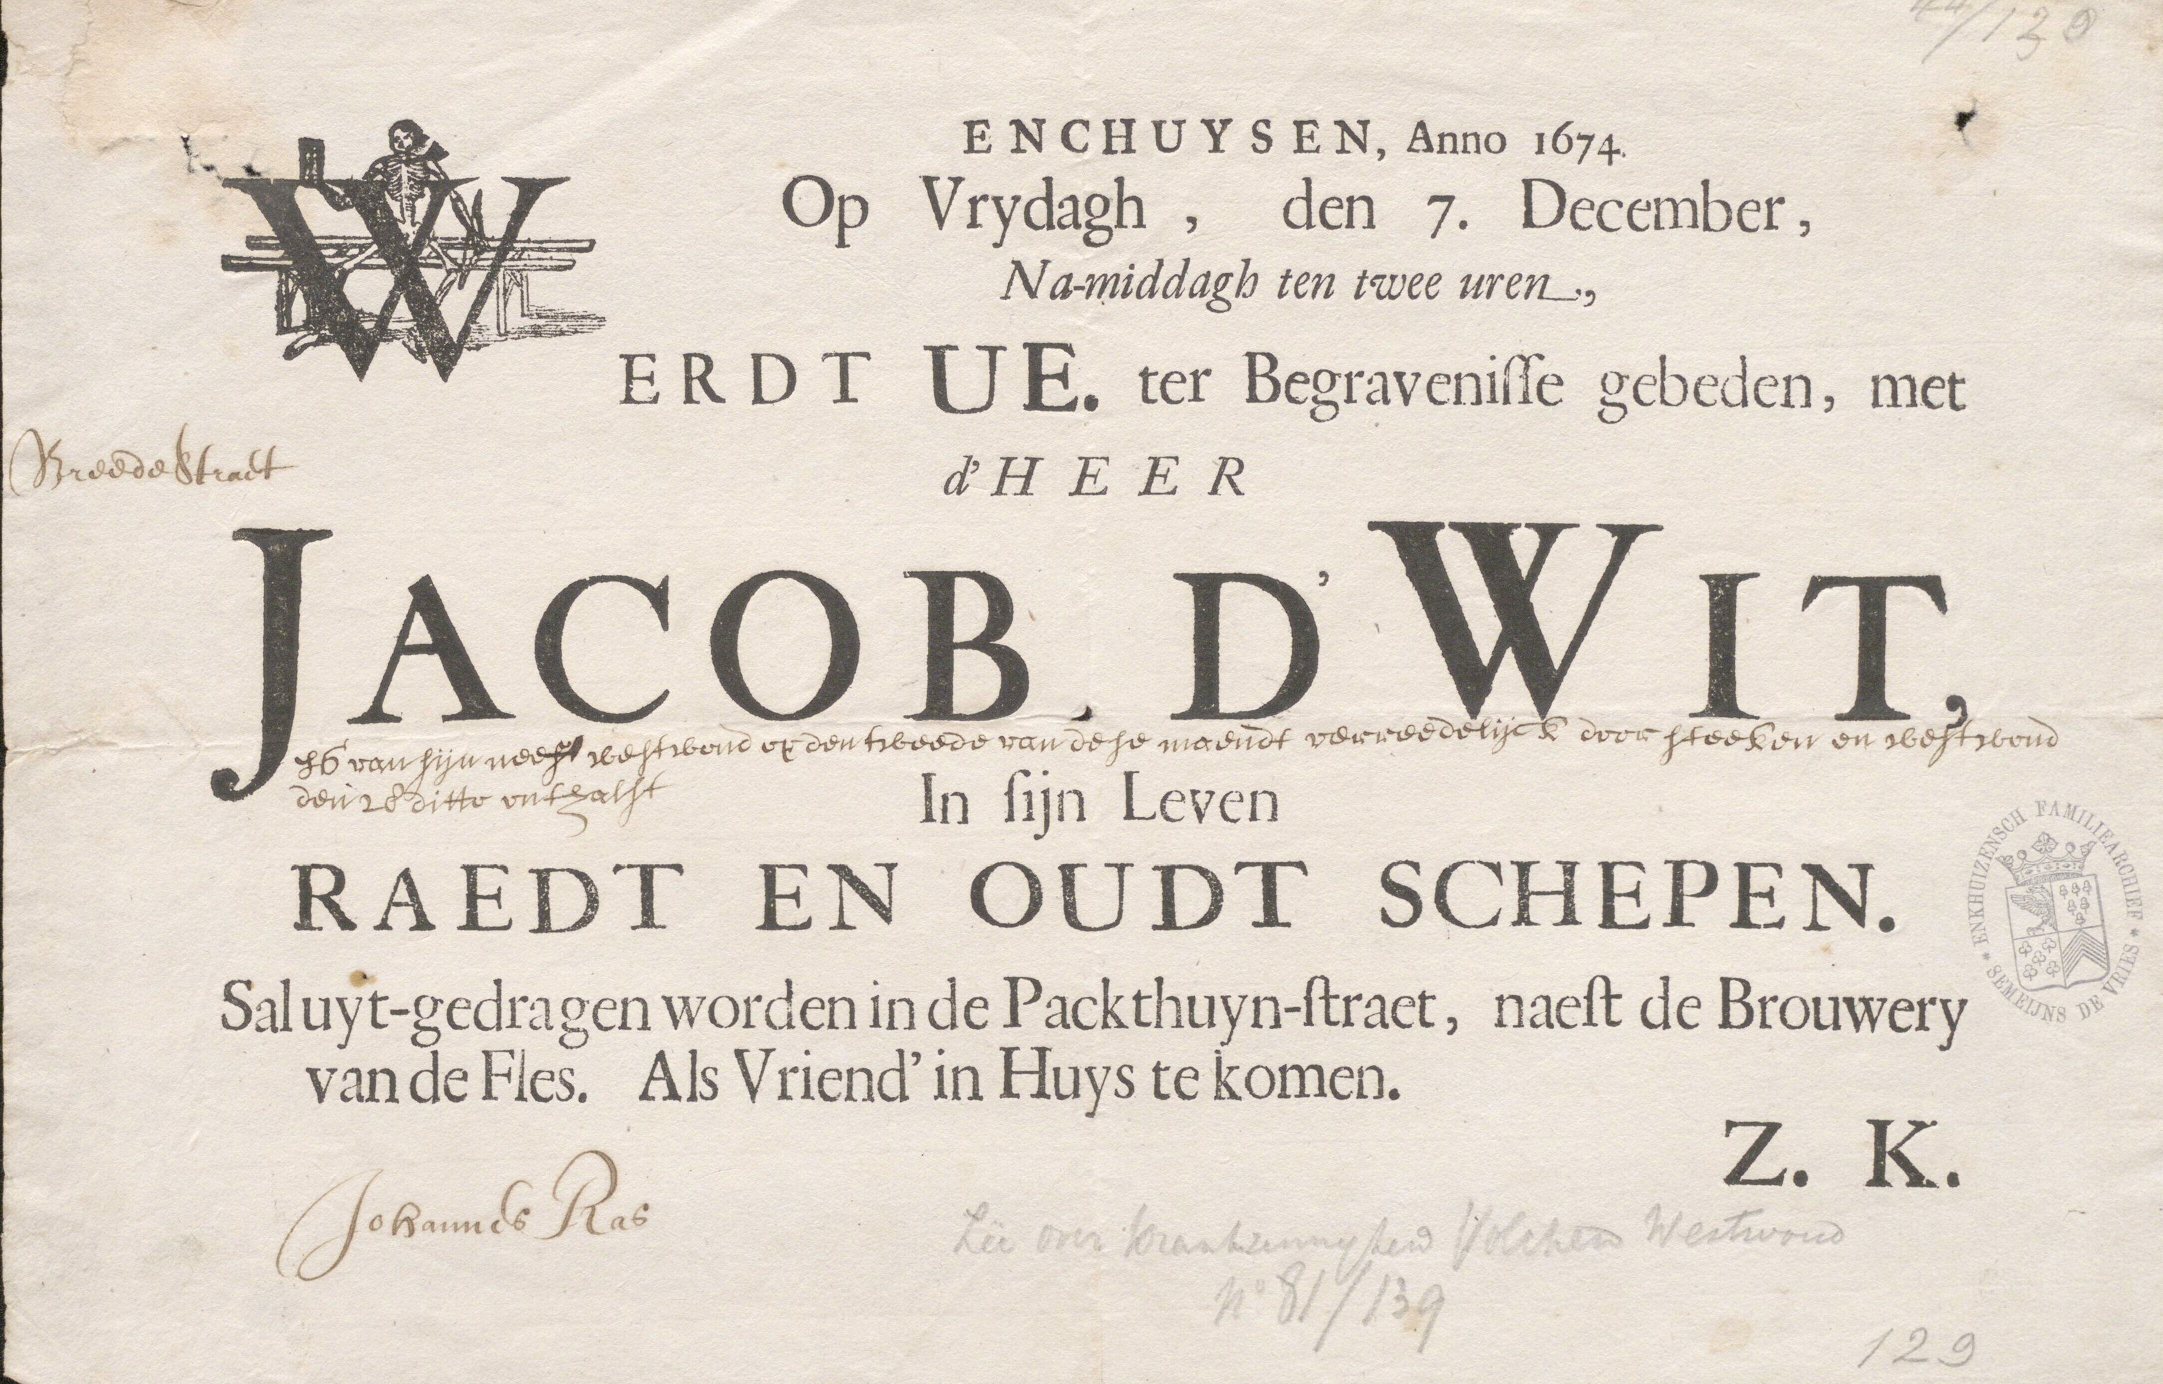 /130
ENCHUYSEN, Anno 1674.
Op Vrydagh, den 7. December,
Na-middagh ten twee uren,
WERDT UE. ter Begraveniſſe gebeden, met
Breede Straet
d'HEER
JACOB D'WIT,
van sijn neef westwoud op den tweede van dese maendt verreedelijck door steeken en westwoud
den 28 ditto onthalst
In ſijn Leven
RAEDT EN OUDT SCHEPEN.
Sal uyt-gedragen worden in de Packthuyn-ſtraet, naeſt de Brouwery
van de Fles. Als Vriend' in Huys te komen.
Z. K.
ENKHUIZENSCH FAMILIEARCHIEF * SEMEIJNS DE VRIES *
Johannes Ras
Zie over krankzinnigheid Volckert Westwoud
No 81/139
129